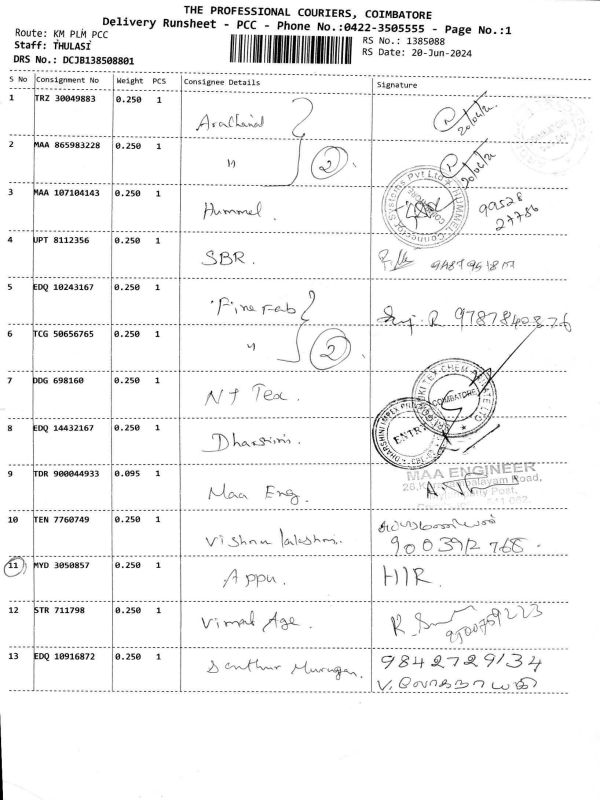 THE PROFESSIONAL COURIERS, COIMBATORE
Delivery Runsheet - PCC - Phone No.:0422-3505555 - Page No.:1
Route: KM PLM PCC
RS No.: 1385088
Staff: THULASI
RS Date: 20-Jun-2024
DRS No.: DCJB138508801
S No Consignment No Weight PCS Consignee Details Signature
1 TRZ 30049883 0.250 1
2 MAA 865983228 0.250 1 " 2
3 MAA 107104143 0.250 1 Hummel. 99528
27786
4 UPT 8112356 0.250 1 SBR.
5 EDQ 10243167 0.250 1 Fine Fab 9787840876
6 TCG 50656765 0.250 1 " 2
7 DDG 698160 0.250 1 N + Tex. COIMBATORE
8 EDQ 14432167 0.250 1 Dharsini. ENTRY
MAA ENGINEER
9 TDR 900044933 0.095 1 Maa Eng.
10 TEN 7760749 0.250 1 Vishnu lakshmi.
90039/2 768.
11 MYD 3050857 0.250 1 Appu. HIR.
12 STR 711798 0.250 1 Vimal Age.
13 EDQ 10916872 0.250 1 Senthur Murugan. 9842729134